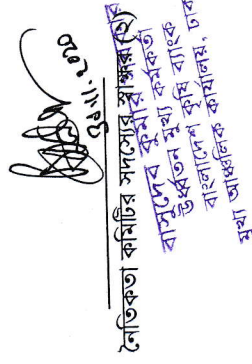 ৩০.১১.২০২০
নৈতিকতা কমিটির সদস্যের স্বাক্ষর (২)
বাসুদেব কুমার
উর্ধ্বতন মুখ্য কর্মকর্তা
বাংলাদেশ কৃষি ব্যাংক
মুখ্য আঞ্চলিক কার্যালয়,